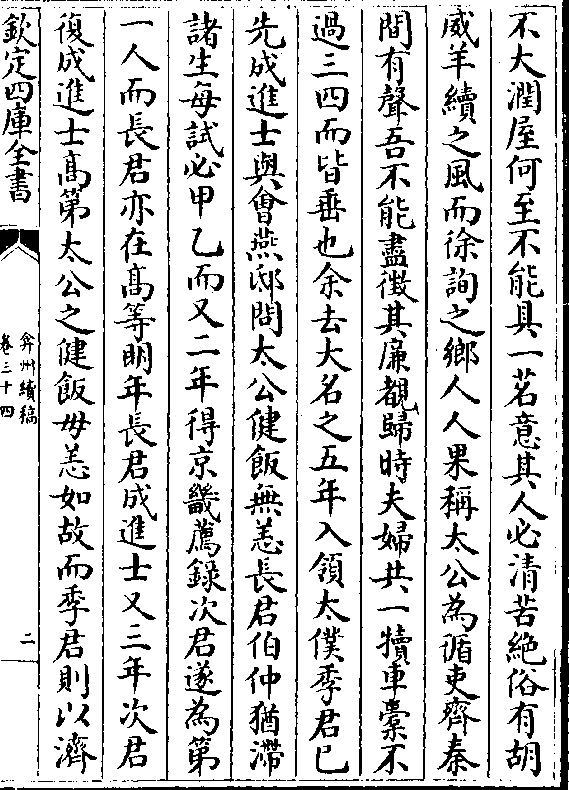 不大潤屋何至不能具一茗意其人必清苦絶俗有胡
威羊續之風而徐詢之鄉人人果稱太公為循吏齊秦
間有聲吾不能盡徴其廉覩歸時夫婦共一犢車橐不
過三四而皆垂也余去大名之五年入領太僕季君已
先成進士與㑹燕邸問太公健飯無恙長君伯仲猶滯
諸生每試必甲乙而又二年得京畿薦錄次君遂為第
一人而長君亦在髙等明年長君成進士又三年次君
復成進士髙第太公之健飯毋恙如故而季君則以濟
欽定四庫全書
弇州續稿
卷三十四
二